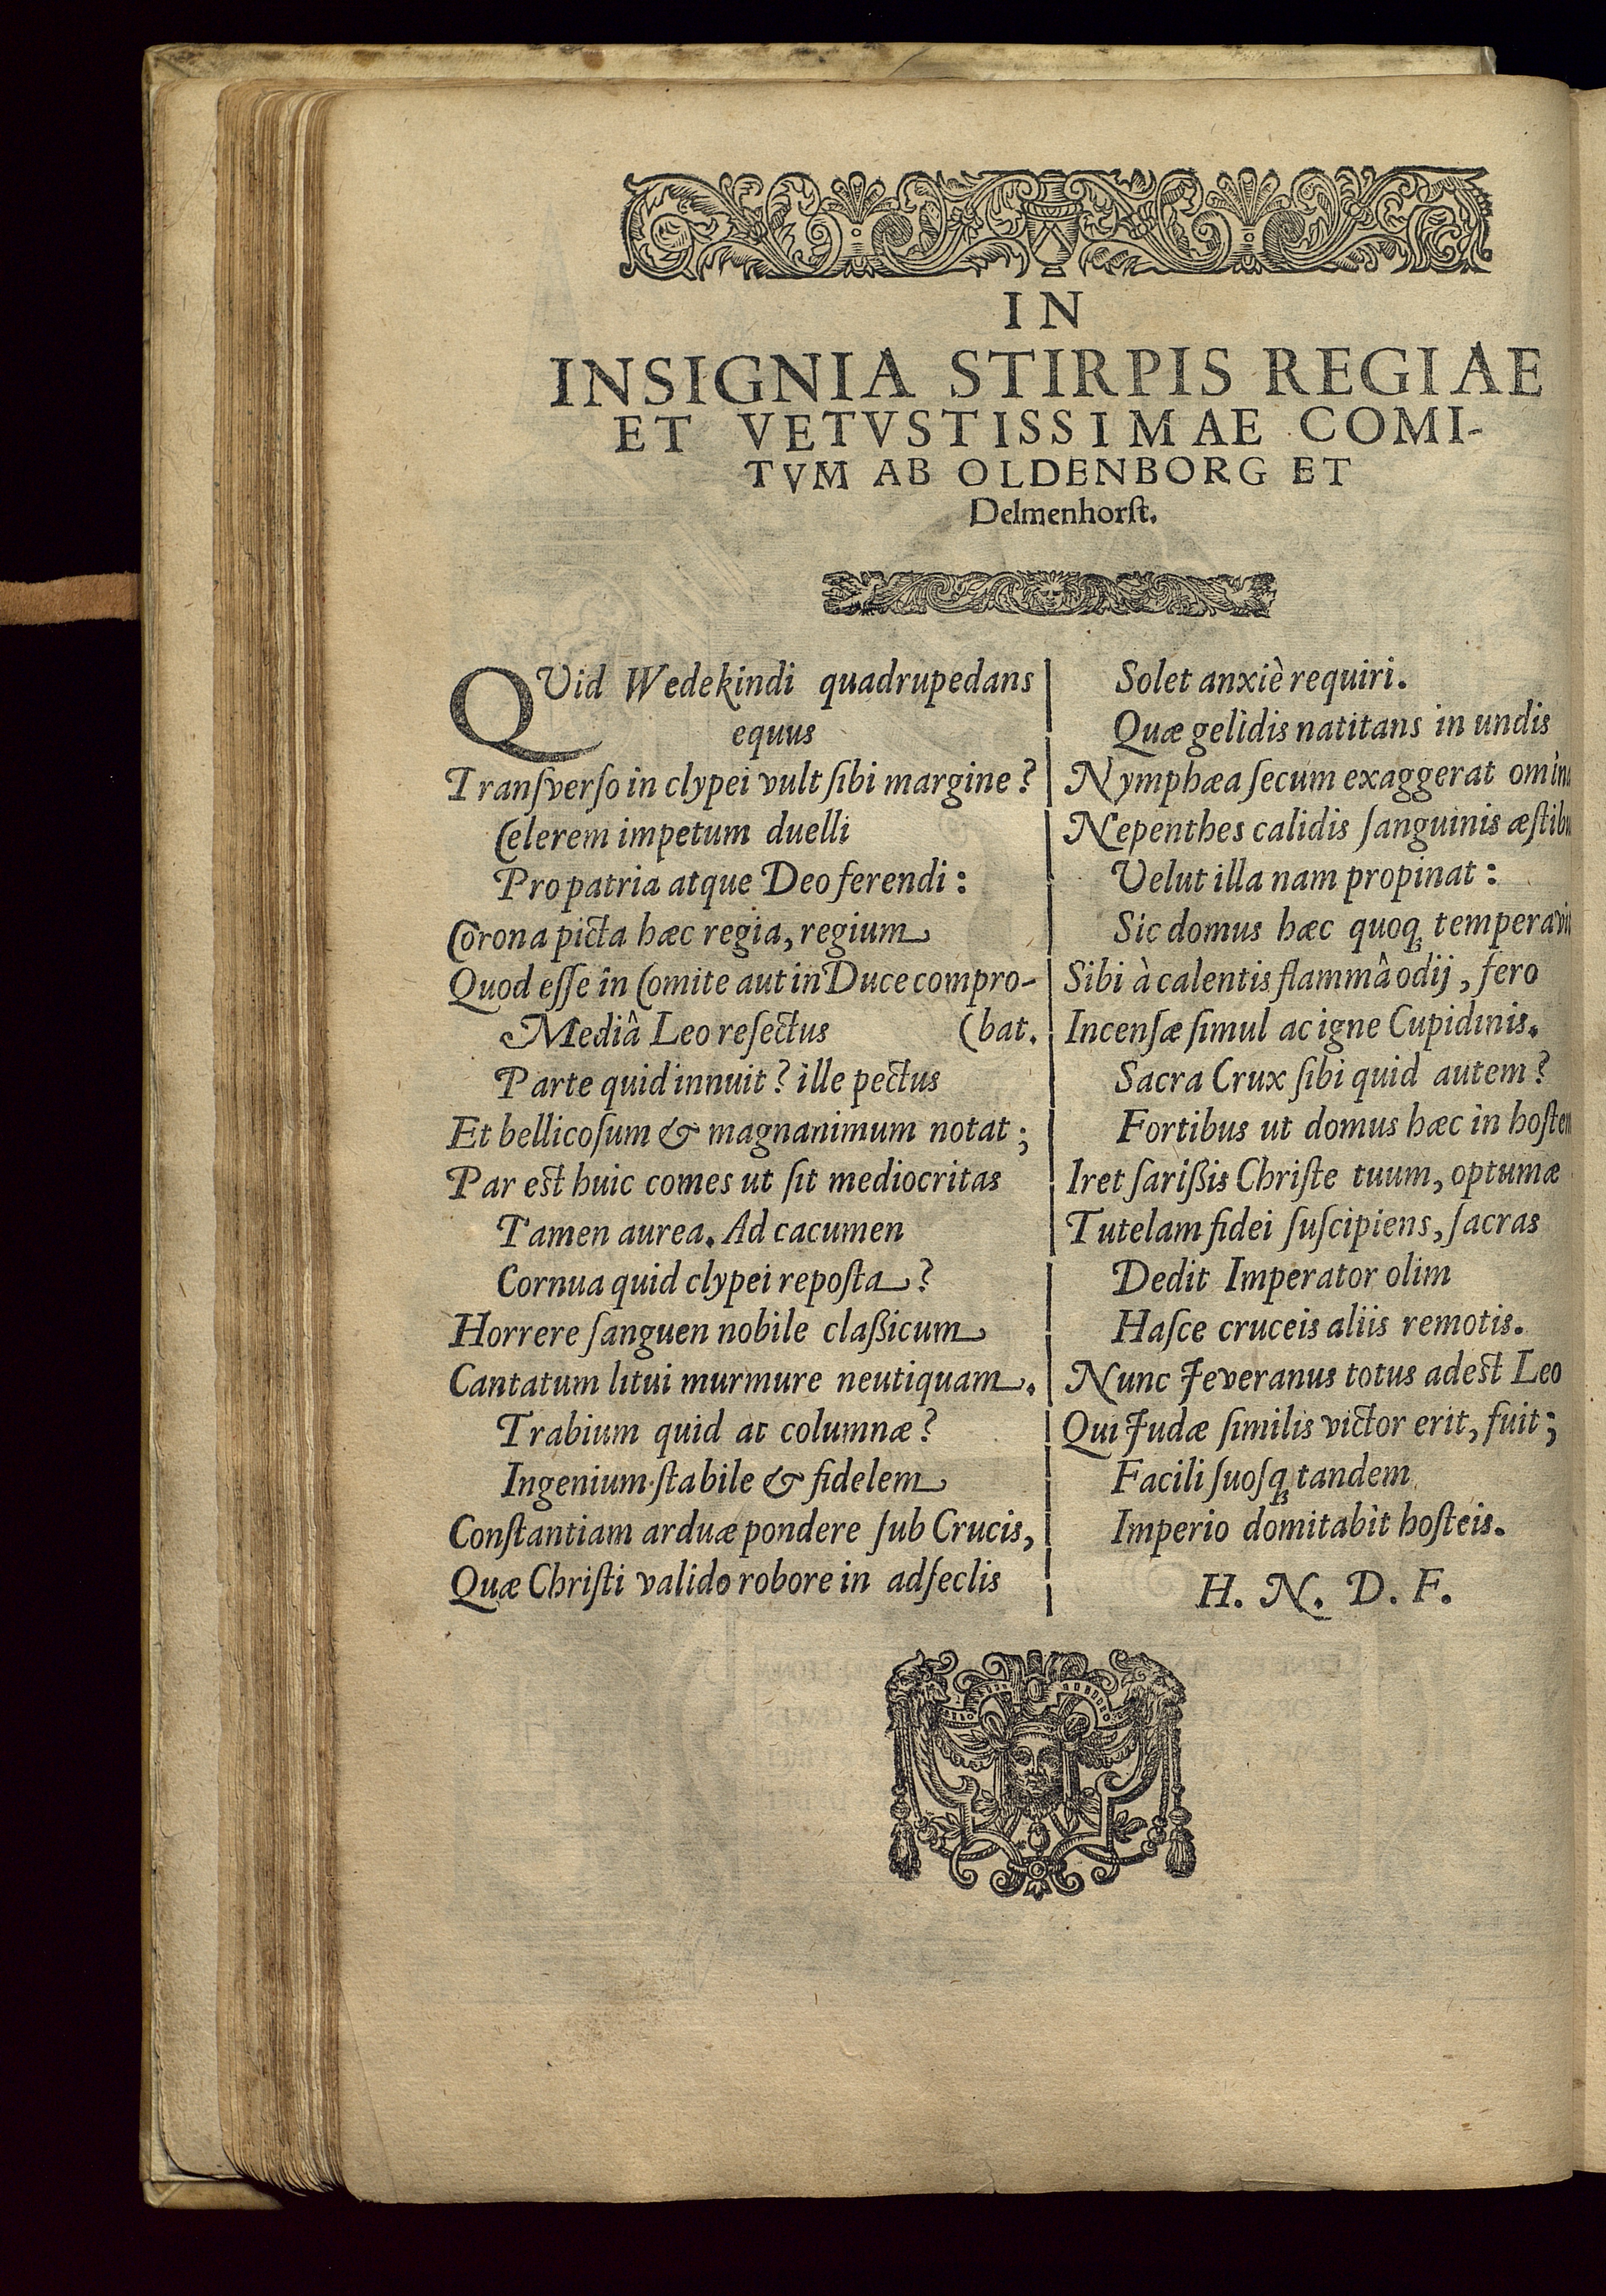 IN
INSIGNIA STIRPIS REGIAE
ET VETVSTISSIMAE COMI-
TVM AB OLDENBORG ET
Delmenhorſt.
QVid Wedekindi quadrupedans
equus
Tranſverſo in clypei vult ſibi margine?
Celerem impetum duelli
Pro patria atque Deo ferendi:
Corona picta hæc regia, regium
Quod eſſe in Comite aut in Duce compro-
Mediâ Leo reſectus (bat.
Parte quid innuit? ille pectus
Et bellicoſum & magnanimum notat;
Par est huic comes ut ſit mediocritas
Tamen aurea. Ad cacumen
Cornua quid clypei repoſta?
Horrere ſanguen nobile claßicum
Cantatum litui murmure neutiquam.
Trabium quid at columnæ?
Ingenium ſtabile & fidelem
Conſtantiam arduæ pondere ſub Crucis,
Quæ Chriſti valido robore in adſeclis
Solet anxiè requiri.
Quæ gelidis natitans in undis
Nymphæa ſecum exaggerat
Nepenthes calidis ſanguinis
Velut illa nam propinat:
Sic domus hæc quoq́;
Sibi à calentis flammâ odij, fero
Incenſæ ſimul ac igne Cupidinis.
Sacra Crux ſibi quid autem?
Fortibus ut domus hæc in
Iret ſarißis Chriſte tuum, optumæ
Tutelam fidei ſuſcipiens, ſacras
Dedit Imperator olim
Haſce cruceis aliis remotis.
Nunc Jeveranus totus adest Leo
Qui Judæ ſimilis victor erit, fuit;
Facili ſuoſq́; tandem
Imperio domitabit hoſteis.
H. N. D. F.